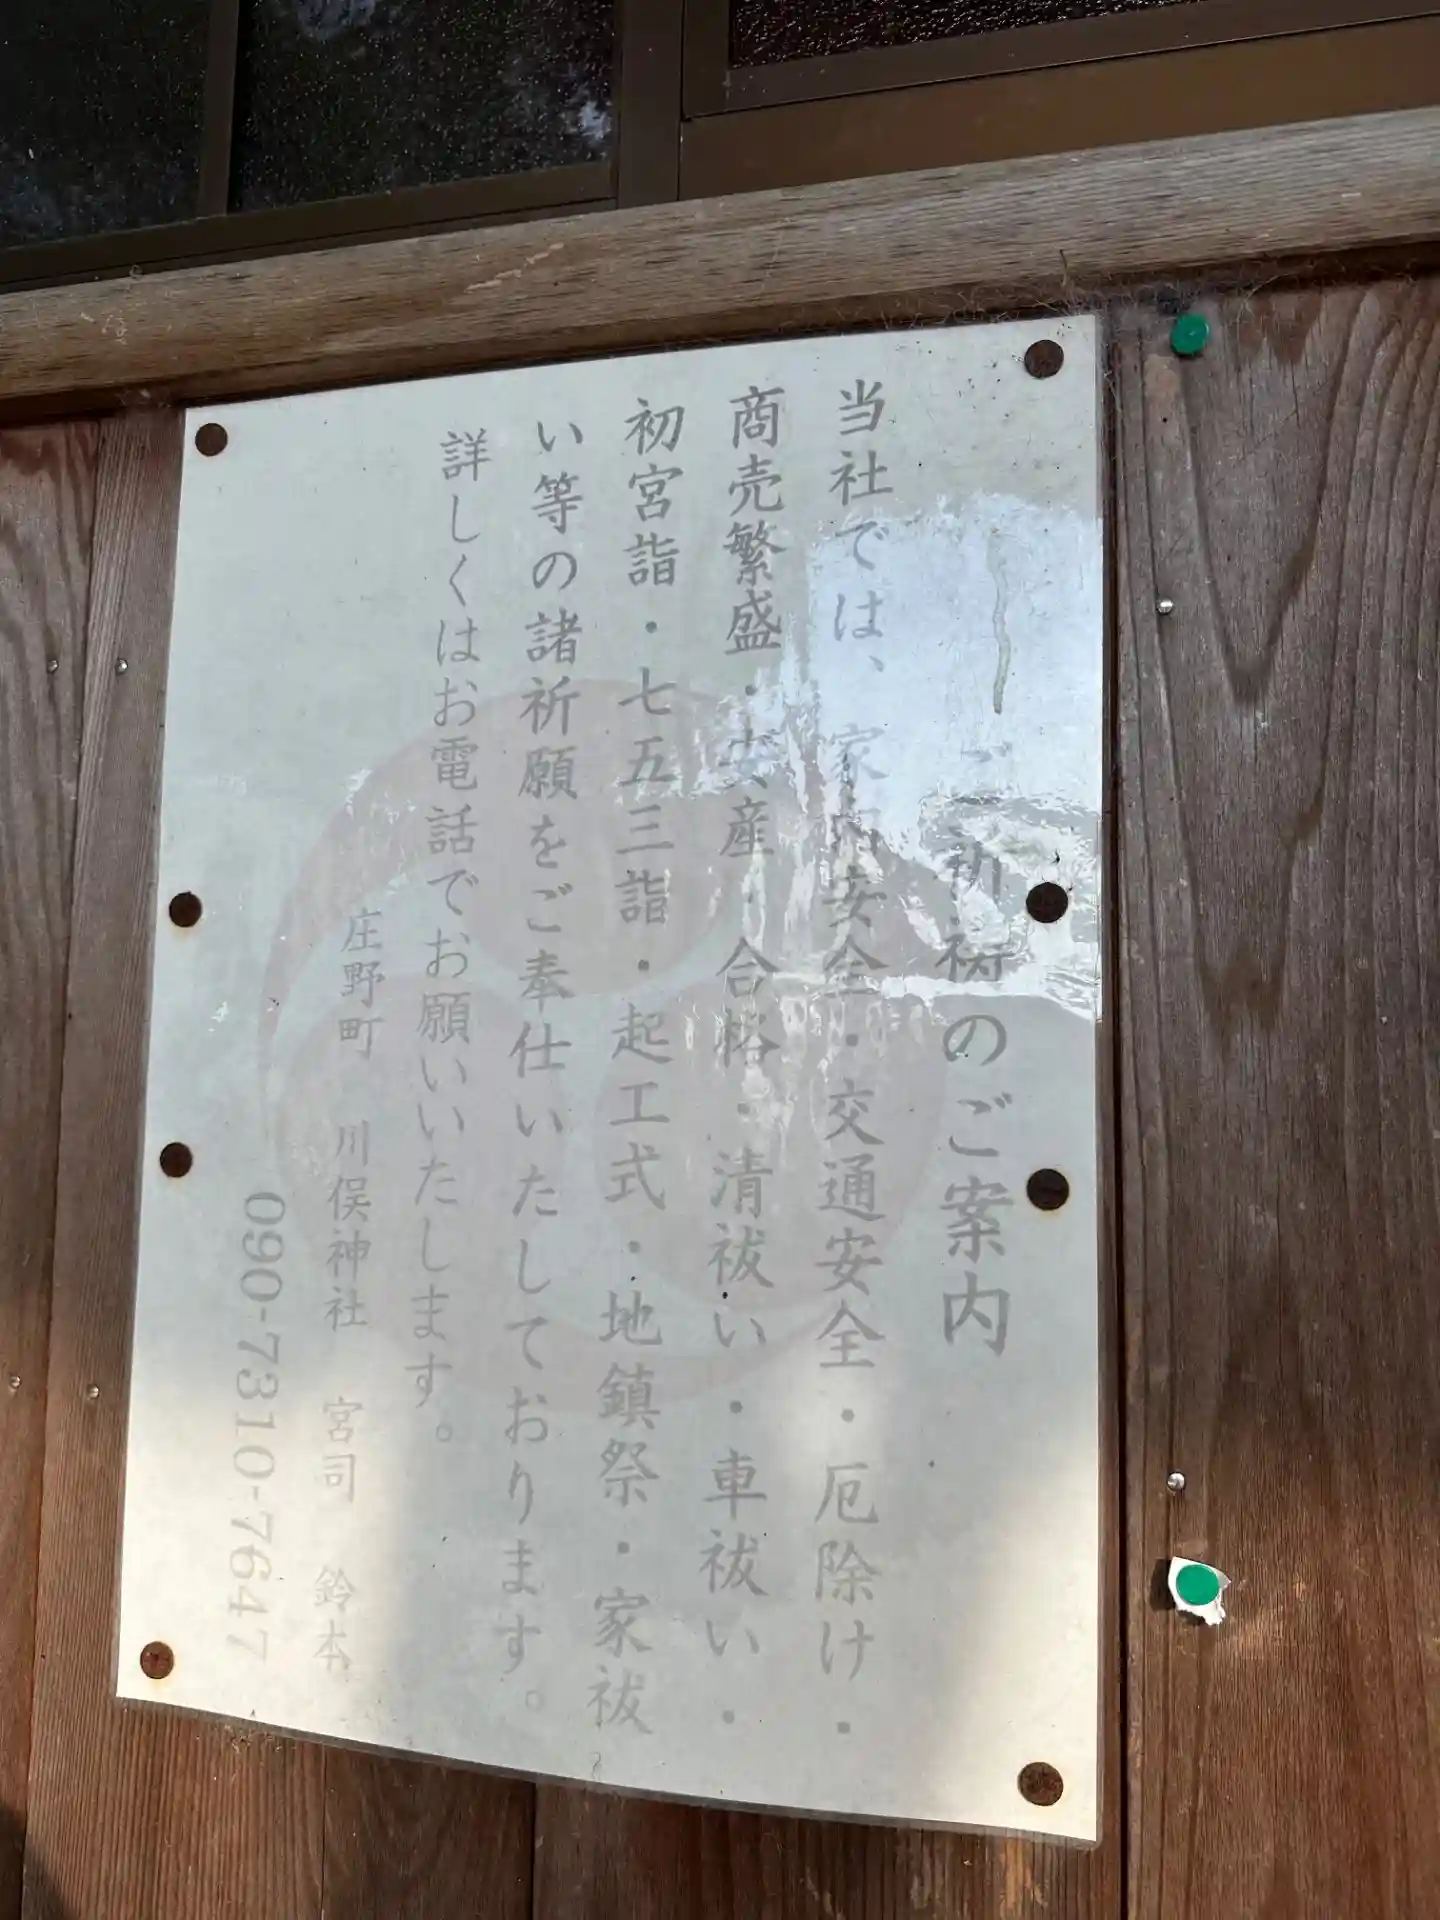 ご祈祷のご案内
当社では、家内安全・交通安全・厄除け・
商売繁盛・安産・合格・清祓い・車祓い・
初宮詣・七五三詣・起工式・地鎮祭・家祓
い等の諸祈願をご奉仕いたしております。
詳しくはお電話でお願いいたします。
庄野町 川俣神社 宮司 鈴木
090-7310-7647